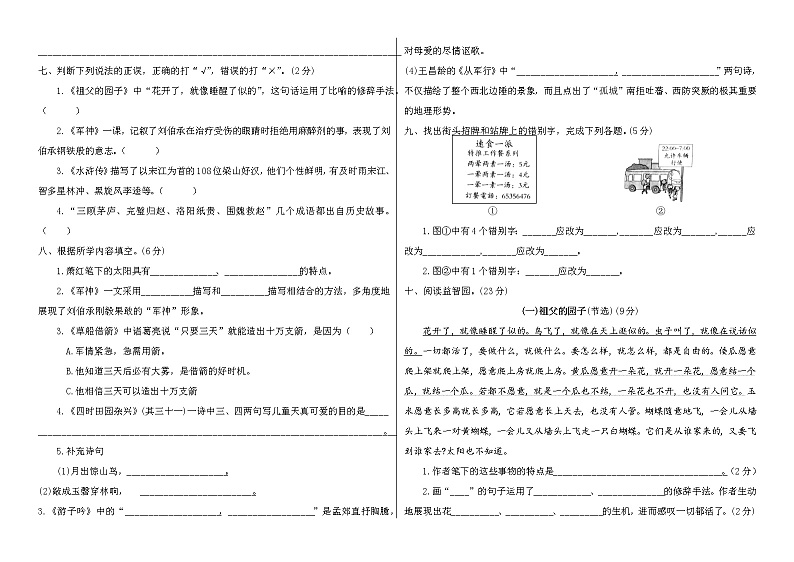 ____________________________________________
七、判断下列说法的正误，正确的打“√”，错误的打“×”。(2分)
1.《祖父的园子》中“花开了，就像睡醒了似的”，这句话运用了比喻的修辞手法。
（      ）
2.《军神》一课，记叙了刘伯承在治疗受伤的眼睛时拒绝用麻醉剂的事，表现了刘
伯承钢铁般的意志。（      ）
3.《水浒传》描写了以宋江为首的108位梁山好汉，他们个性鲜明，有及时雨宋江、
智多星林冲、黑旋风李逵等。（      ）
4.“三顾茅庐、完璧归赵、洛阳纸贵、围魏救赵”几个成语都出自历史故事。
（      ）
八、根据所学内容填空。(6分)
1.萧红笔下的太阳具有____________、____________的特点。
2.《军神》一文采用__________描写和__________描写相结合的方法，多角度地
展现了刘伯承刚毅果敢的“军神”形象。
3.《草船借箭》中诸葛亮说“只要三天”就能造出十万支箭，是因为（    ）
A.军情紧急，急需用箭。
B.他知道三天后必有大雾，是借箭的好时机。
C.他相信三天可以造出十万支箭
4.《四时田园杂兴》(其三十一)一诗中三、四两句写儿童天真可爱的目的是_____
____________________________________________。
5.补充诗句
(1)月出惊山鸟，__________________。
(2)敲成玉磬穿林响，  ____________________。
3.《游子吟》中的“__________________，________________”是孟郊直抒胸臆，
对母爱的尽情讴歌。
(4)王昌龄的《从军行》中“__________________，__________________”两句诗，
不仅描绘了整个西北边陲的景象，而且点出了“孤城”南拒吐蕃、西防突厥的极其重要
的地理形势。
九、找出街头招牌和站牌上的错别字，完成下列各题。(5分)
速食一派
特推工作餐系列
两荤两素一汤：5元
一荤两素一汤：4元
一荤一素一汤：3元
订餐電話：65356476
①
22:00-7:00
允许车辆
行使
②
1.图①中有4个错别字：______应改为______,______应改为______,______应
改为__________,______应改为______。
2.图②中有1个错别字：______应改为______。
十、阅读益智园。(23分)
(一)祖父的园子(节选)(9分)
花开了，就像睡醒了似的。鸟飞了，就像在天上逛似的。虫子叫了，就像在说话似
的。一切都活了，要做什么，就做什么。要怎么样，就怎么样，都是自由的。倭瓜愿意
爬上架就爬上架，愿意爬上房就爬上房。黄瓜愿意开一朵花，就开一朵花，愿意结一个
瓜，就结一个瓜。若都不愿意，就是一个瓜也不结，一朵花也不开，也没有人问它。玉
米愿意长多高就长多高，它若愿意长上天去，也没有人管。蝴蝶随意地飞，一会儿从墙
头上飞来一对黄蝴蝶，一会儿又从墙头上飞走一只白蝴蝶。它们是从谁家来的，又要飞
到谁家去？太阳也不知道。
1.作者笔下的这些事物的特点是______________________________。(2分)
2.画“____”的句子运用了__________、____________的修辞手法。作者生动
地展现出花________、________、________的生机，进而感叹一切都活了。(2分)